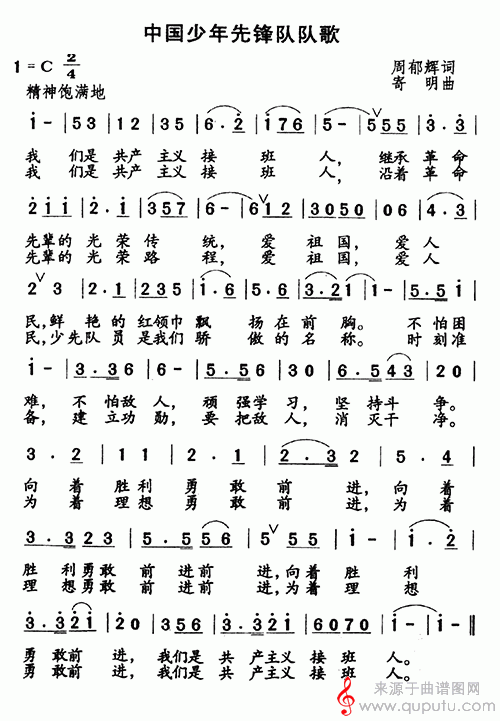 中国少年先锋队队歌
1 = C 2/4
周郁辉词
精神饱满地
寄 明曲
i - | 5 3 1 2 | 3 5 3 5 | 6. 2 | i 7 6 | 5 - | 5 5 5 | 3. 3 |
我 们是 共产 主义 接 班 人, 继承 革命
我 们是 共产 主义 接 班 人, 沿着 革命
2 i i | 2. i | 3 5 5 | 6 - | 6 i | 3 0 5 0 | i 0 | 0 6 |
先辈的 光荣 传 统, 爱 祖 国, 爱人
先辈的 光荣 路 程, 爱 祖 国, 爱人
2 3 | 2. i | 2 3 5 | i. 6 | 5. 6 | 3. 2 1 | 1 - | 5. 5 i |
民,鲜 艳 的 红领巾 飘 扬 在 前 胸。 不 怕困
民,少先队 员 是我们 骄 傲 的 名 称。 时 刻准
i - | 3. 3 6 | 5 - | 3. 5 2 3 | 1 - | 3 0 | 6. 5 4 3 | 2 0 |
难, 不 怕敌 人, 顽 强学 习, 坚 持斗 争。
备, 建 立功 勋, 要 把敌 人, 消 灭干 净。
3. 2 | 1 1 | i. i | 6 6 | 2 - | 2. 3 | 2 - | 5. 4 |
向 着 胜利 勇 敢 前 进, 向着
为 着 理想 勇 敢 前 进, 为着
3. 3 2 3 | 5. 5 5 6 | 5 5 5 | i - | i. 2 |
胜 利勇敢 前 进前 进,向着 胜 利
理 想勇敢 前 进前 进,为着 理 想
3. 3 2 1 | 2 0 | 3 5 6 | i. 2 | 3 2 3 | i. 2 | i 0 ‖
勇 敢前 进, 我们是 共 产主义 接 班 人。
勇 敢前 进, 我们是 共 产主义 接 班 人。
来源于曲谱图网
www.quputu.com